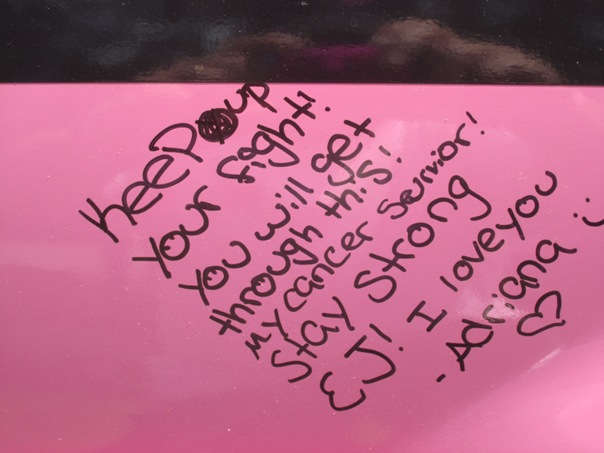 Keep up
your fight!
You will get
through this!
My cancer Survivor!
Stay Strong
EJ! I love you
- Adriana :)
♡